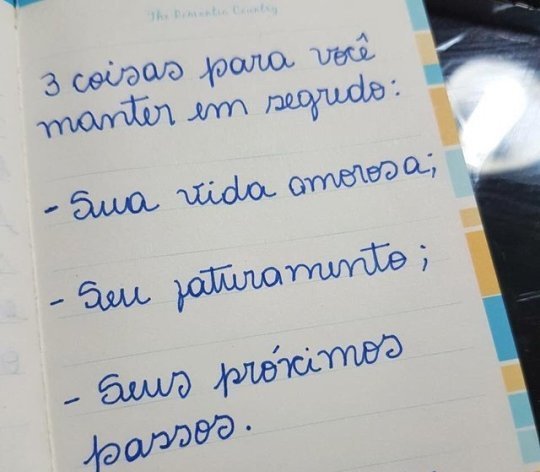 The Romantic Country
3 coisas para você
manter em segredo:
- Sua vida amorosa;
- Seu faturamento;
- Seus próximos
passos.